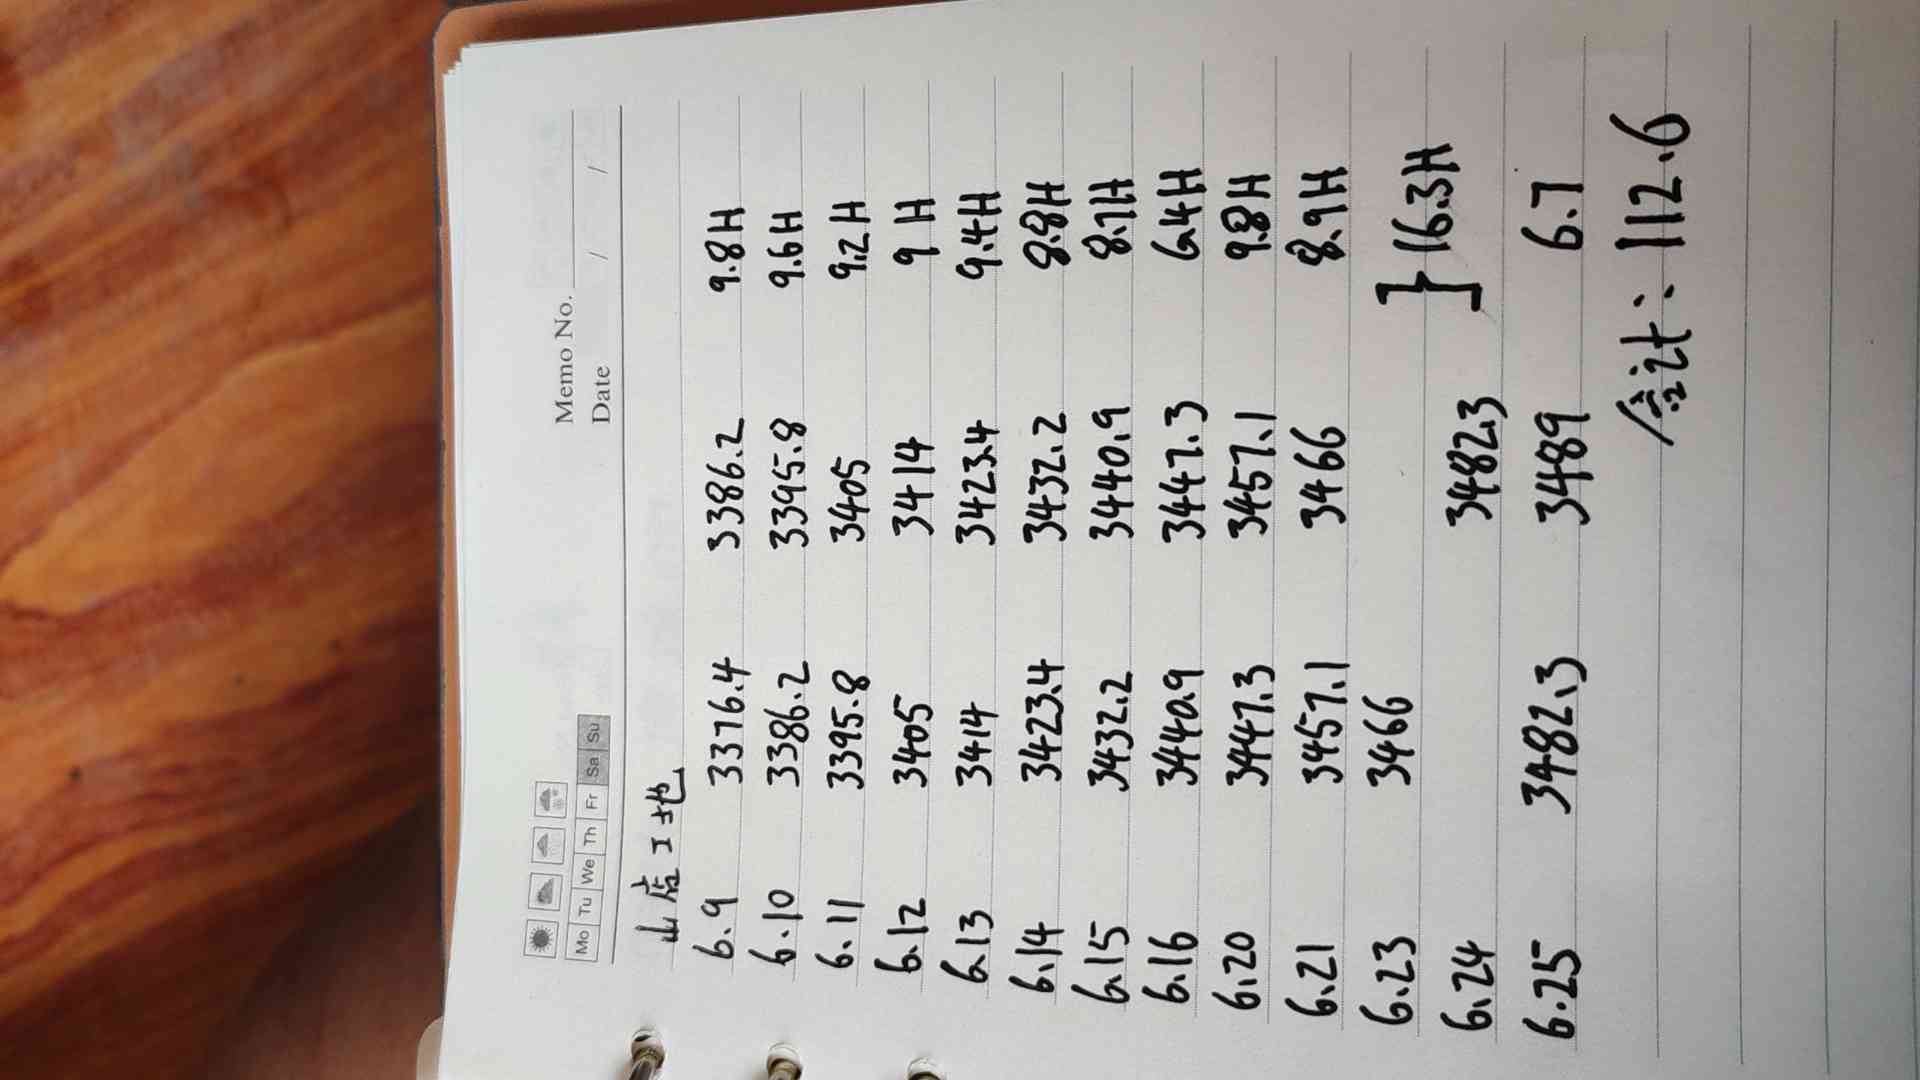 Memo No.
Mo Tu We Th Fr Sa Su
Date / /
山店工地
6.9 3376.4 3386.2 9.8H
6.10 3386.2 3395.8 9.6H
6.11 3395.8 3405 9.2H
6.12 3405 3414 9H
6.13 3414 3423.4 9.4H
6.14 3423.4 3432.2 8.8H
6.15 3432.2 3440.9 8.7H
6.16 3440.9 3447.3 6.4H
6.20 3447.3 3457.1 9.8H
6.21 3457.1 3466 8.9H
6.23 3466
} 16.3H
6.24 3482.3
6.25 3482.3 3489 6.7
合计:112.6